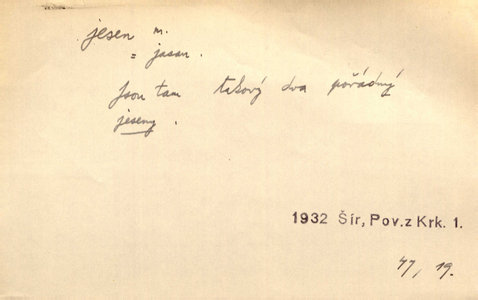 jesen m.
= jasan.
Jsou tam takový dva pořádný
jeseny.
1932 Šír, Pov. z Krk. 1.
47, 19.